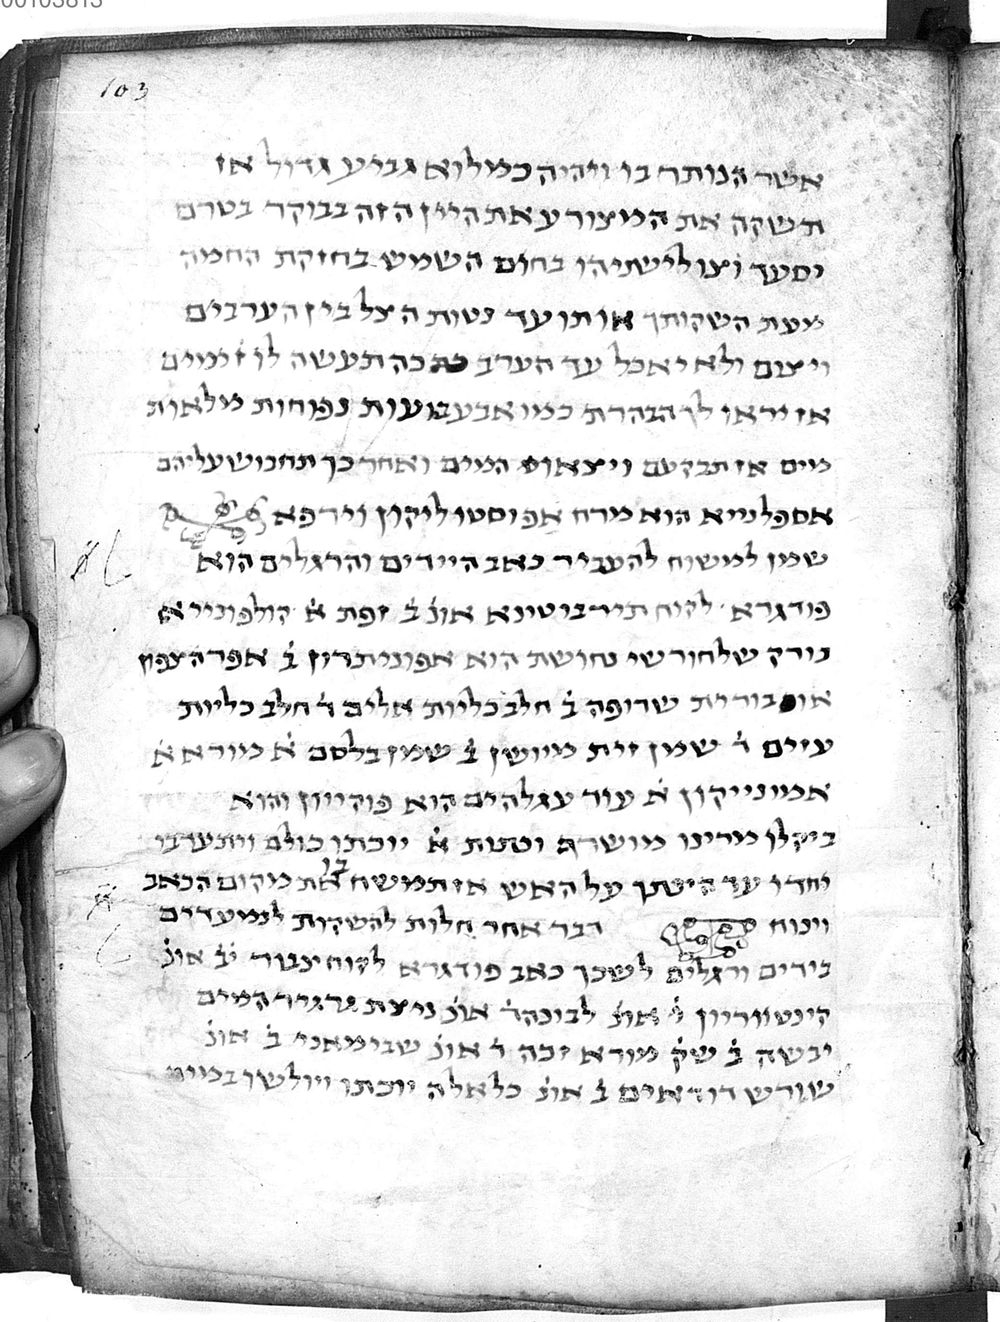 00103813
103
אשר הנותר בו ויהיה כמלוא גביע גדול אז
תשקה את המצורע את היין הזה בבוקר בטרם
יסעד וצו לישתיהו בחום השמש בחזקת החמה
מעת השקותך אותו עד נטות הצל בין הערבים
ויצום ולא יאכל עד הערב ככה תעשה לו ז ימים
אז יראו לך הבהרת כמו אבעבועות נפוחות מלאות
מים אז תבקעם ויצאו המים ואחר כך תחבוש עליהם
אספלנייא הוא מרח אפוסטוליקון וירפא
שמן למשוח להעביר כאב היידים והרגלים הוא
פודגרא לקוח תירביטינא אונ̇ ב̇ זפת א̇ קולפונייא
נורק שלחורשי נחושת הוא אפוניתרון ב̇ אפר הצפון
או בורית שרופה ב̇ חלב כליות אלים ד̇ חלב כליות
עזים ד̇ שמן זית מיושן ב̇ שמן בלסם א̇ מורא א̇
אמונייקון א̇ עוד עגלהים הוא פוקיוון והוא
ביקלו מרינו מושרה וטנות א̇ יוכתו כולם ויתערבו
יחדו עד היתך על האש אז תמשח בו את מקום הכאב
וינוח דבר אחר חלות להשקות לנמעדים
בידים ורגלים לשכך כאב פודגרא לקוח יצבור י̇ב̇ אונ̇
קינטווריון י̇ אונ̇ לבונה ד̇ אונ̇ ניצת גרגיר המים
יבשה ב̇ שק̇ מורא זכה ד̇ אונ̇ שבימאני ב̇ אונ̇
שורש דודאים ב̇ אונ̇ כל אלה יוכתו ויולשו במים